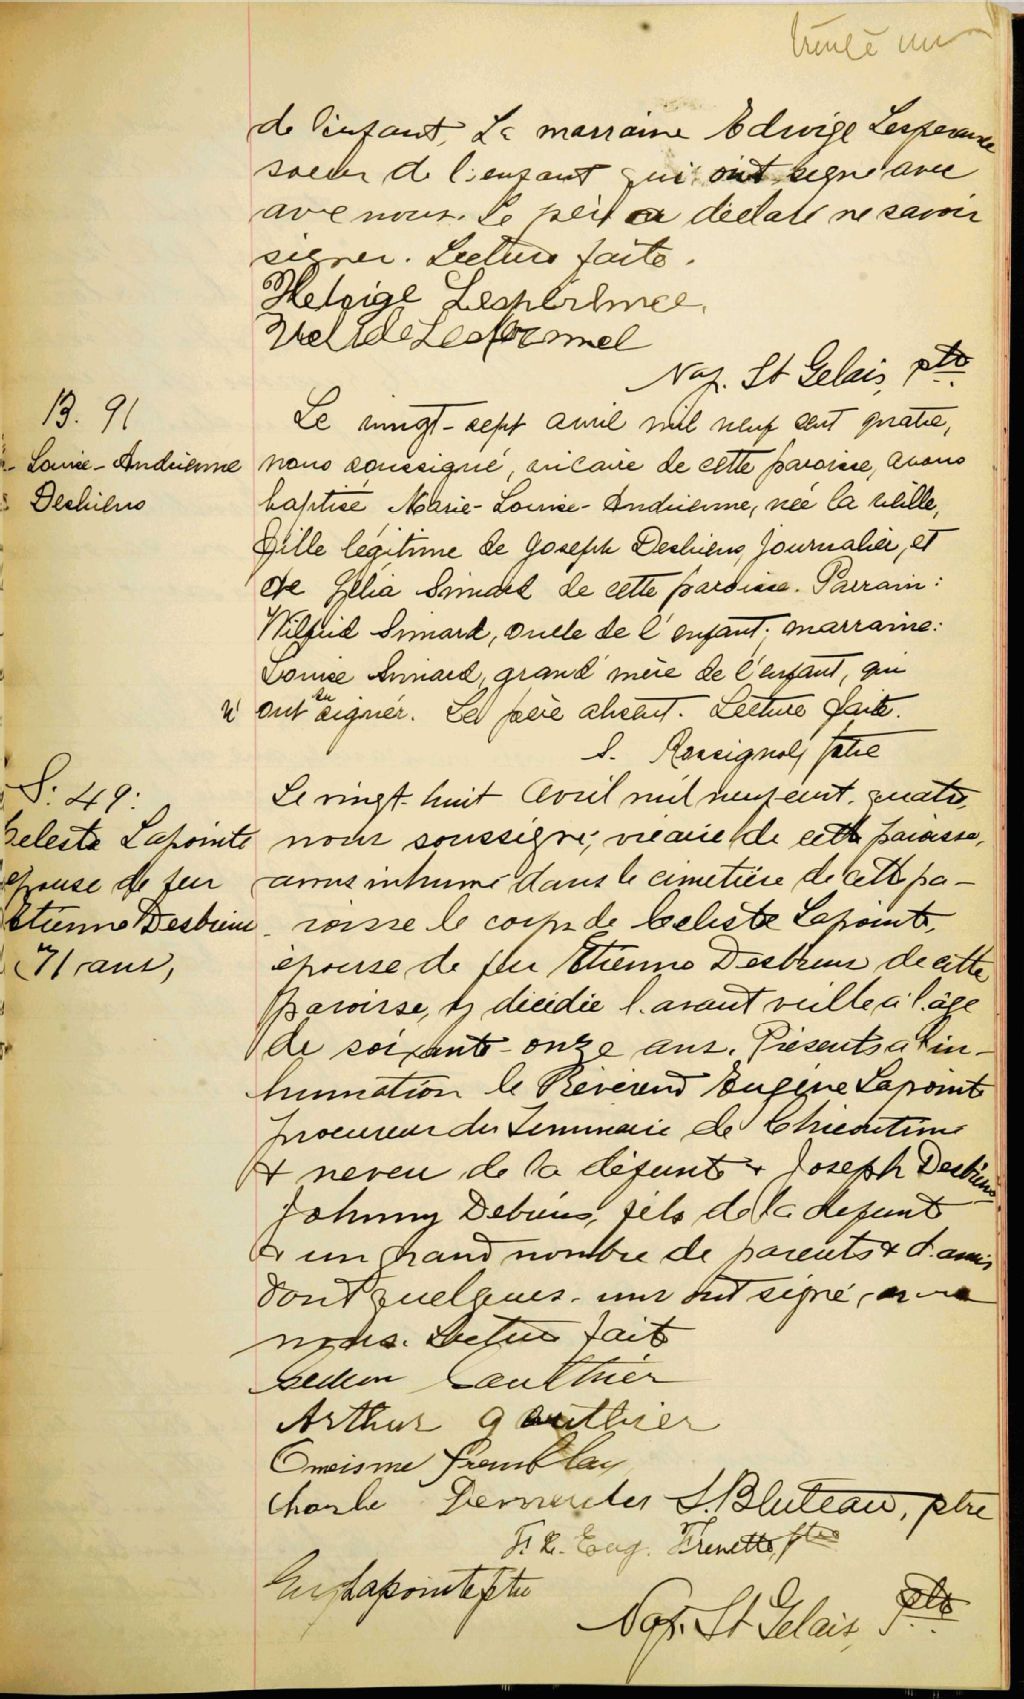 trente un
de l'enfant, La marraine Edwige Lesperance
soeur de l'enfant qui ont signé avec
avec nous. Le père a déclaré ne savoir
signer. Lecture faite.
Hedvige Lespérence.
Lesperance
Nap. St Gelais, ptre
B. 91
Louise-Andrienne
Desbiens
Le vingt-sept avril mil neuf cent quatre,
nous soussigné, vicaire de cette paroisse, avons
baptisé Marie-Louise-Andrienne, née la veille,
fille légitime de Joseph Desbiens, journalier, et
de Zélia Simard de cette paroisse. Parrain:
Wilfrid Simard, oncle de l'enfant; marraine:
Louise Simard, grand'mère de l'enfant, qui
n'ont su signer. Le père absent. Lecture faite.
S. Rossignol, ptre
S. 49:
Celeste Lapointe
épouse de feu
Etienne Desbiens
71 ans,
Le vingt-huit Avril mil neuf cent quatre,
nous soussigné, vicaire de cette paroisse,
avons inhumé dans le cimetière de cette pa-
roisse le corps de Celeste Lapointe,
épouse de feu Etienne Desbiens de cette
paroisse, y décédée l'avant veille à l'âge
de soixante-onze ans. Présents à l'in-
humation le Révérend Eugène Lapointe
procureur du Séminaire de Chicoutimi
& neveu de la défunte & Joseph Desbiens
Johnny Debiens, fils de la defunte
& un grand nombre de parents & d'amis
dont quelques-uns ont signé avec
nous. Lecture faite
Gedeon Gauthier
Arthur Gauthier
Onesime Tremblay
Charle Desmeules S. Bluteau, ptre
F. X. Eug. Frenette, ptre
Eug Lapointe ptre
Nap. St Gelais, ptre